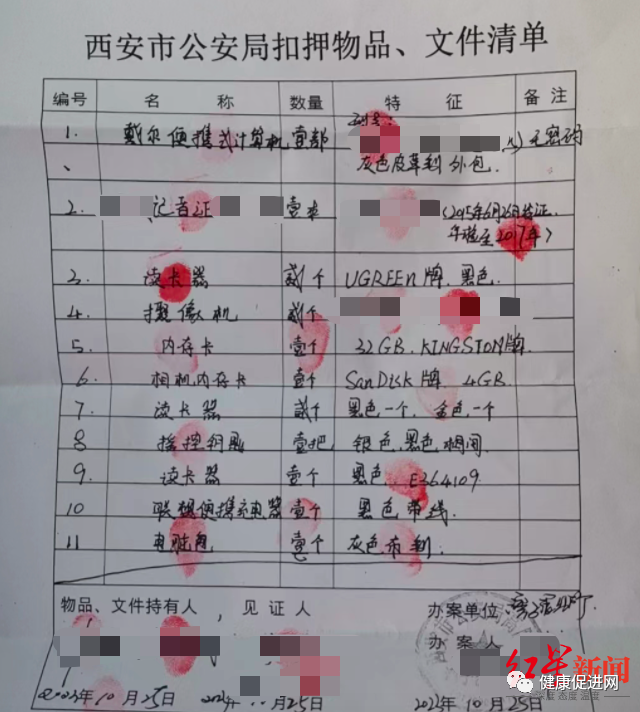 西安市公安局扣押物品、文件清单
编号 名称 数量 特征 备注
1. 戴尔便携式计算机 壹部 型号: 无密码
、 灰色皮革制外包.
2. 记者证 壹本 (2015年6月26日发证.
年检至2017年)
3. 读卡器 贰个 UGREEN牌.黑色.
4. 摄像机 贰个
5. 内存卡 壹个 32GB.KINGSTON牌.
6. 相机内存卡 壹个 SanDisk牌.4GB.
7. 读卡器 贰个 黑色一个.金色一个
8 遥控钥匙 壹把 银色.黑色相间
9. 读卡器 壹个 黑色.E364109.
10 联想便携充电器 壹个 黑色带线.
11 电脑包 壹个 灰色布制.
物品、文件持有人, 见证人 办案单位:
办案人
2023年10月25日 10月25日 2023年10月25日
红星新闻
健康促进网